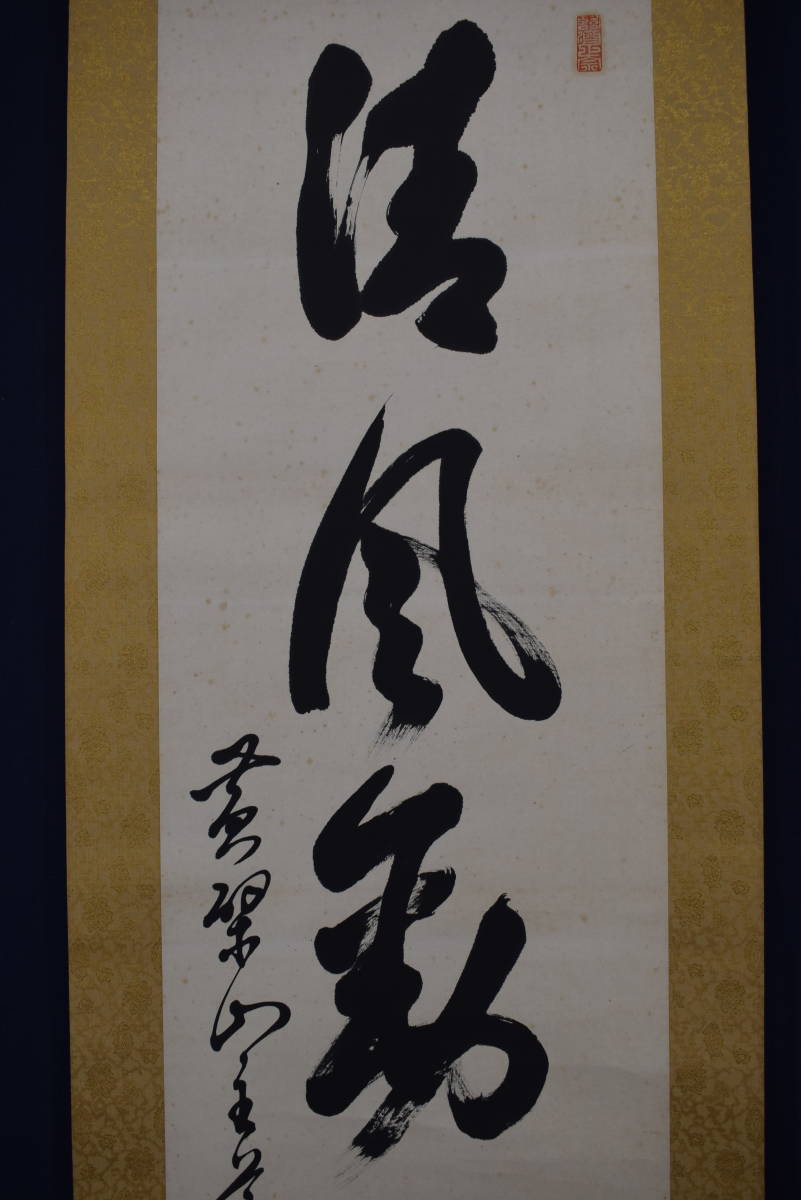 清風動
黄檗山主